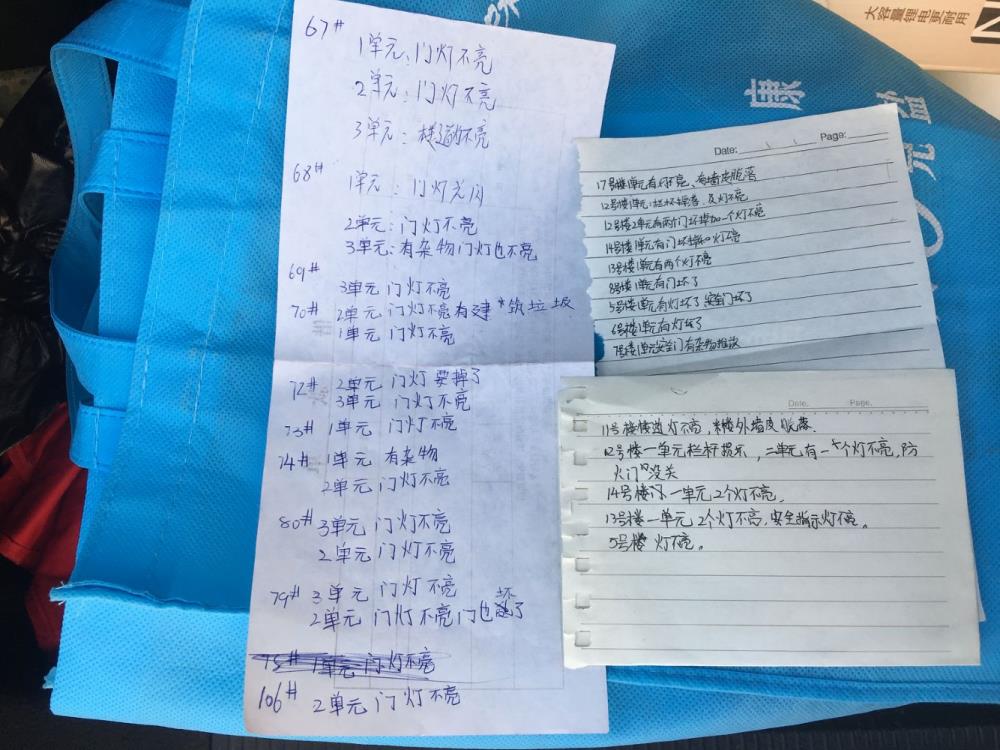 67#
1单元：门灯不亮
2单元：门灯不亮
3单元：楼道灯不亮
68#
1单元：门灯关闭
2单元：门灯不亮
3单元：有杂物门灯也不亮
69#
3单元 门灯不亮
70# 2单元 门灯不亮有建筑垃圾
1单元 门灯不亮
72# 2单元 门灯要掉了
3单元 门灯不亮
73# 1单元 门灯不亮
74# 1单元 有杂物
2单元 门灯不亮
80# 3单元 门灯不亮
2单元 门灯不亮
79# 3单元 门灯不亮
2单元 门灯不亮门也坏了
75# 1单元 门灯不亮
106# 2单元 门灯不亮
Date: Page:
17号楼1单元有灯不亮、有墙皮脱落
12号楼1单元栏杆损害，及灯不亮
12号楼2单元有两个门坏掉加一个灯不亮
14号楼1单元有门坏掉和灯不亮
13号楼1单元有两个灯不亮
8号楼1单元有门坏了
5号楼1单元有灯坏了安全门坏了
6号楼1单元有灯坏了
7号楼1单元安全门有杂物堆放
Date. Page.
11号楼楼道灯不亮，楼外墙皮脱落.
12号楼一单元栏杆损示，二单元有一个灯不亮,防
火门没关
14号楼 一单元2个灯不亮.
13号楼一单元2个灯不亮,安全指示灯不亮。
5号楼 灯不亮。
大容量锂电更耐用
N
康